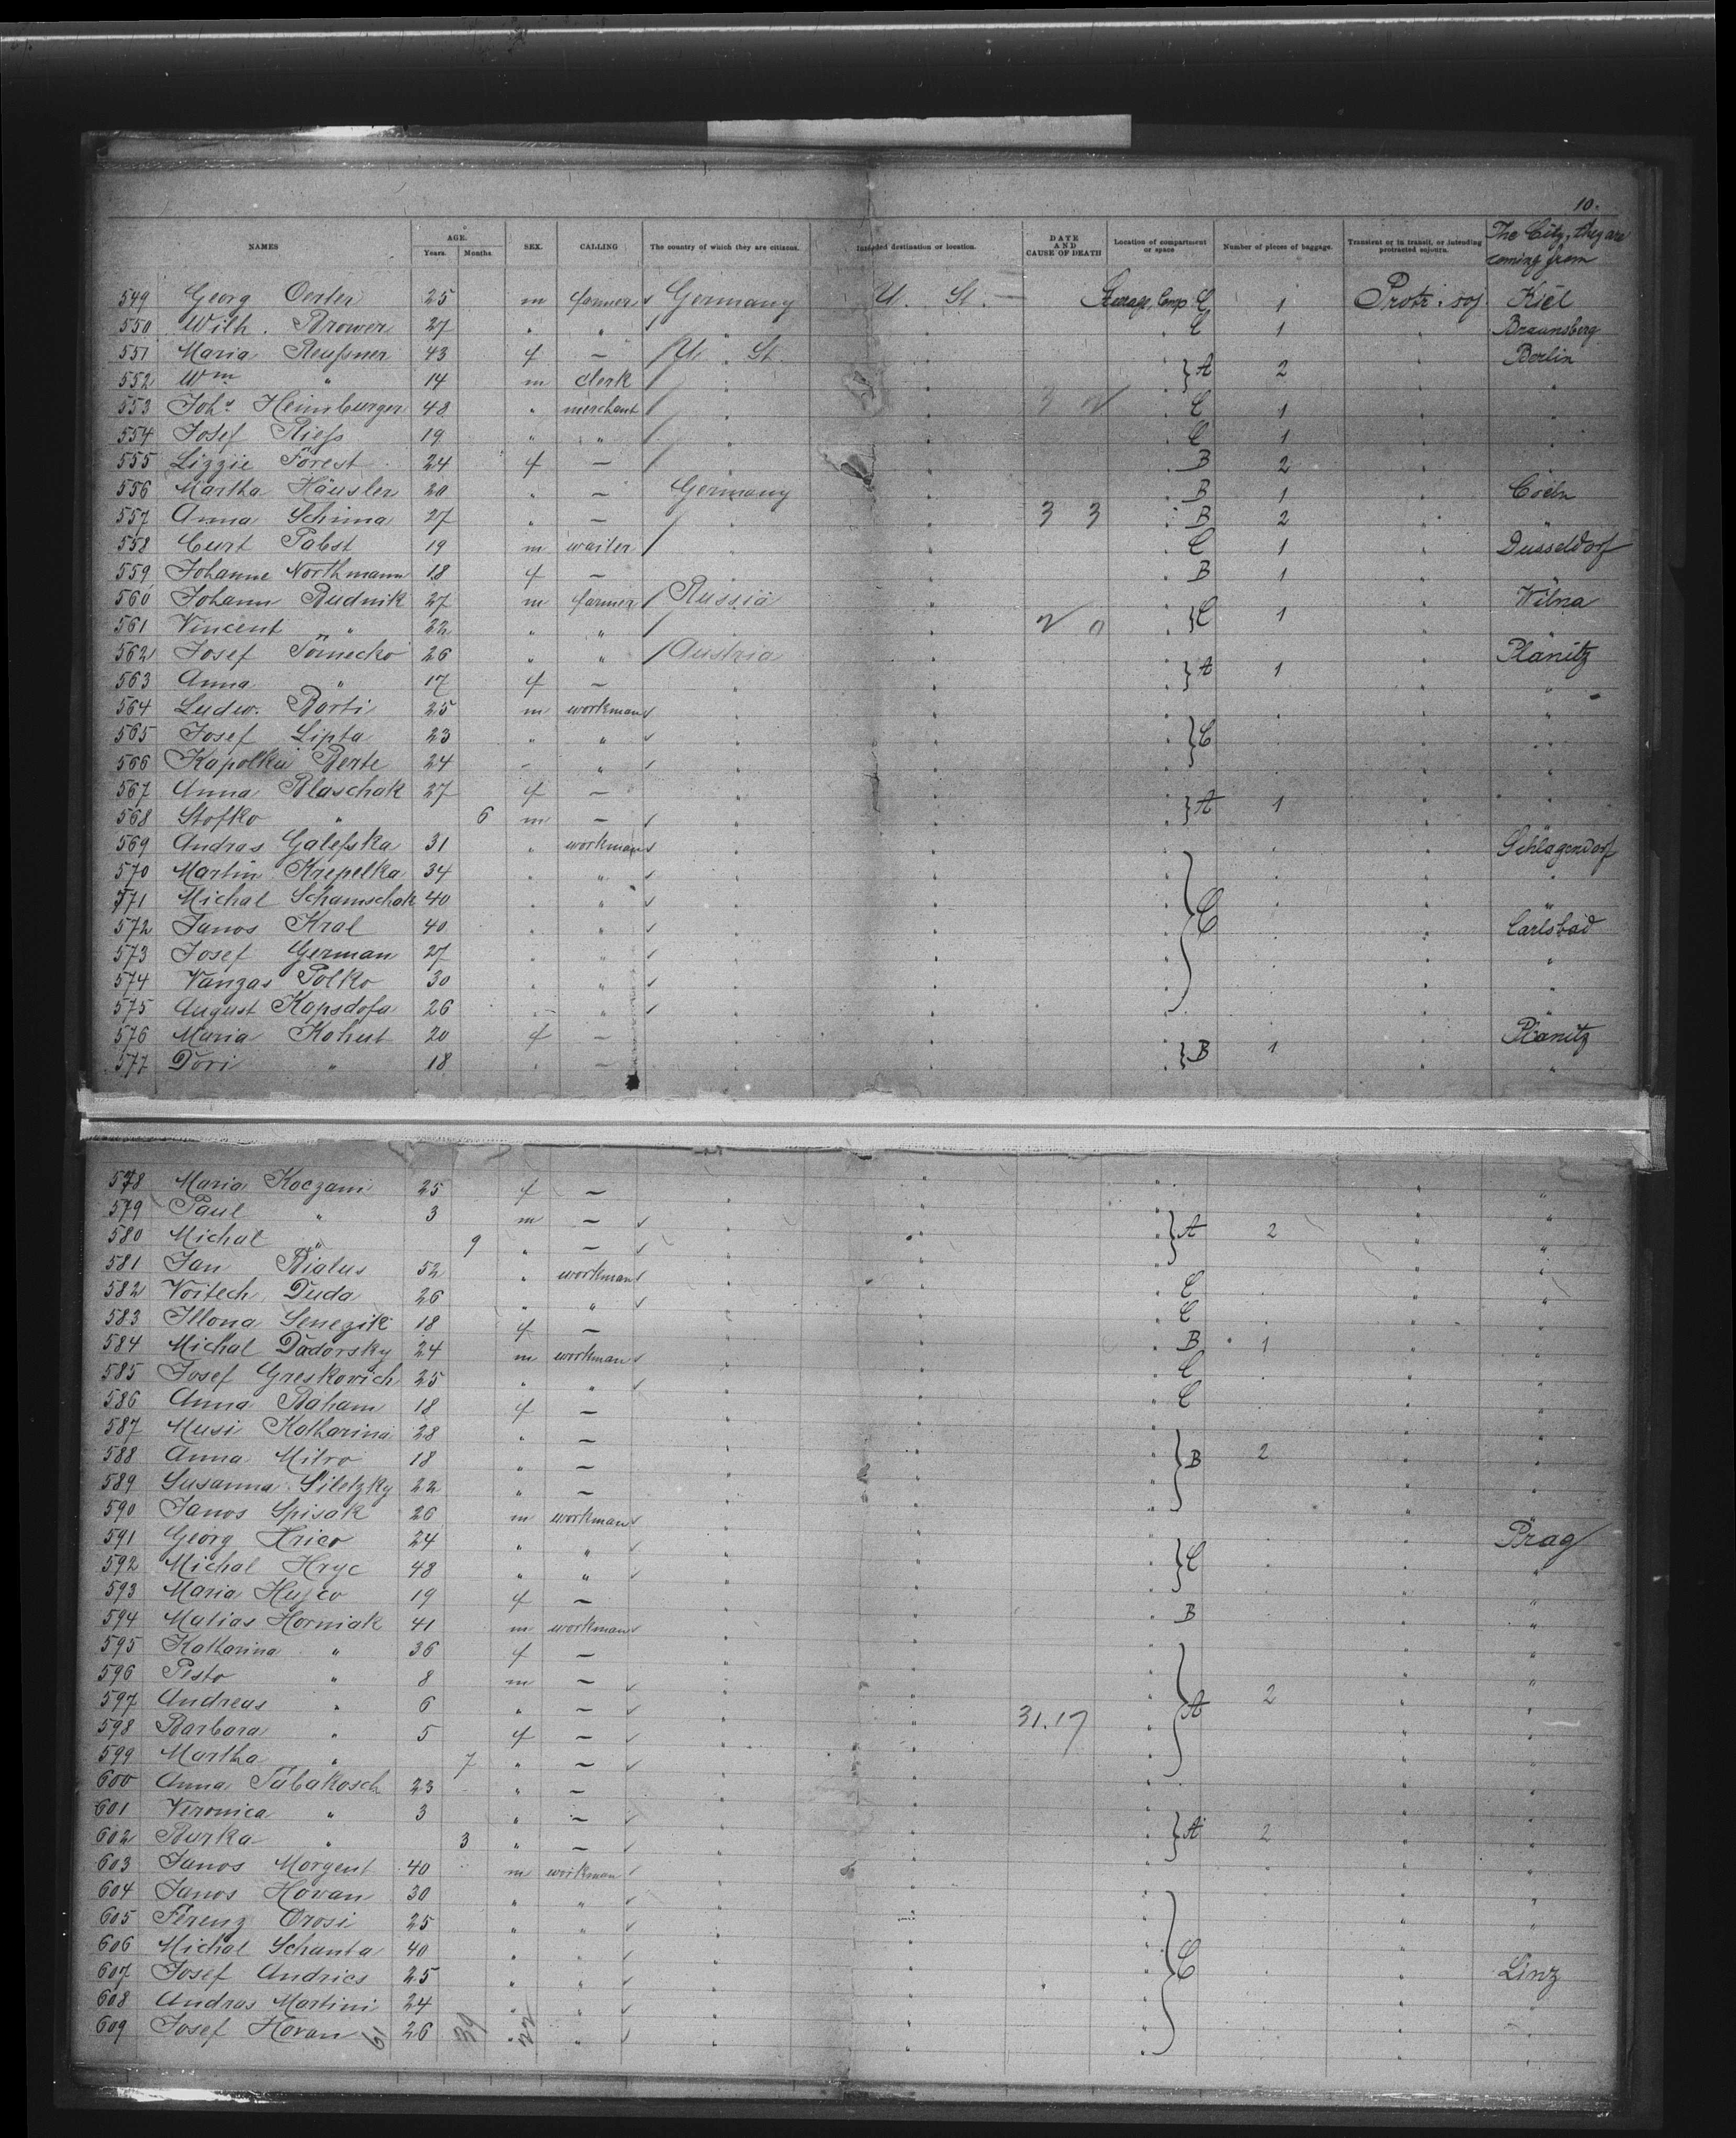 10.
NAMES AGE. Years. Months. SEX. CALLING The country of which they are citizens. Intended destination or location. DATE AND CAUSE OF DEATH Location of compartment or space Number of pieces of baggage. Transient or in transit, or intending protracted sojourn. The City, they are coming from
549 Georg Oerter 25 m farmer Germany U. St. Steerage, Comp. C 1 Protr. soj. Kiel
550 Wilh. Brower 27 " " " C 1 " Braunsberg
551 Maria Reußner 43 f — U. St. " 2 " Berlin
552 Wm " 14 m clerk " " } A " "
553 Johs Heimburger 48 " merchant " " C 1 " "
554 Josef Rieß 19 " " " " C 1 " "
555 Lizzie Forest 24 f — " " B 2 " "
556 Martha Häusler 20 " — Germany " B 1 " Coeln
557 Anna Schima 27 " — " " 3 3 B 2 " "
558 Curt Pabst 19 m waiter " " C 1 " Düsseldorf
559 Johanne Northmann 18 f — " " B 1 " "
560 Johann Rudnik 27 m farmer Russia " } C 1 " Wilna
561 Vincent " 22 " " " " " "
562 Josef Tomecko 26 " " Austria " } A 1 " Planitz
563 Anna " 17 f — " " " "
564 Ludw. Borti 25 m workman " " " "
565 Josef Lipta 23 " " " " } C " " "
566 Kapolka Berte 24 " " " " " " "
567 Anna Blaschak 27 f — " " } A 1 " "
568 Stofko " 6 m — " " " "
569 Andras Galeßka 31 " workman " " " " Schlagendorf
570 Martin Krepelka 34 " " " " " " "
571 Michal Schamschak 40 " " " " } C " " "
572 Janos Kral 40 " " " " " " Carlsbad
573 Josef German 27 " " " " " " "
574 Vanzas Polko 30 " " " " " " "
575 August Kapsdofa 26 " " " " " " "
576 Maria Kohut 20 f — " " } B 1 " Planitz
577 Dori " 18 " — " " " "
578 Maria Koczani 25 f — " " " "
579 Paul " 3 m — " " } A 2 " "
580 Michal " 9 " — " " " "
581 Jan Bialus 52 " workman " " C " " "
582 Voitech Duda 26 " " " " C " " "
583 Illona Senezik 18 f — " " B 1 " "
584 Michal Dadorsky 24 m workman " " C " " "
585 Josef Greskovich 25 " " " " C " " "
586 Anna Baham 18 f — " " " "
587 Musi Katharina 28 " — " " } B 2 " "
588 Anna Mitro 18 " — " " " "
589 Susanna Siletzky 22 " — " " " "
590 Janos Spisak 26 m workman " " " " Prag
591 Georg Hrico 24 " " " " } C " " "
592 Michal Hryc 48 " " " " " " "
593 Maria Hujco 19 f — " " B " " "
594 Matias Horniak 41 m workman " " " "
595 Katharina " 36 f — " " " "
596 Pisto " 8 m — " " } A 2 " "
597 Andreas " 6 " — " " 31.17 " "
598 Barbara " 5 f — " " " "
599 Martha " 7 " — " " " "
600 Anna Tabakosch 23 " — " " " "
601 Veronica " 3 " — " " } A 2 " "
602 Burka " 3 " — " " " "
603 Janos Morgent 40 m workman " " " " "
604 Janos Hovan 30 " " " " " " "
605 Ferenz Orosi 25 " " " " " " "
606 Michal Schanta 40 " " " " } C " " "
607 Josef Andrics 25 " " " " " " Linz
608 Andras Martini 24 " " " " " " "
609 Josef Hovan 26 " " " " " " "
61 39 22